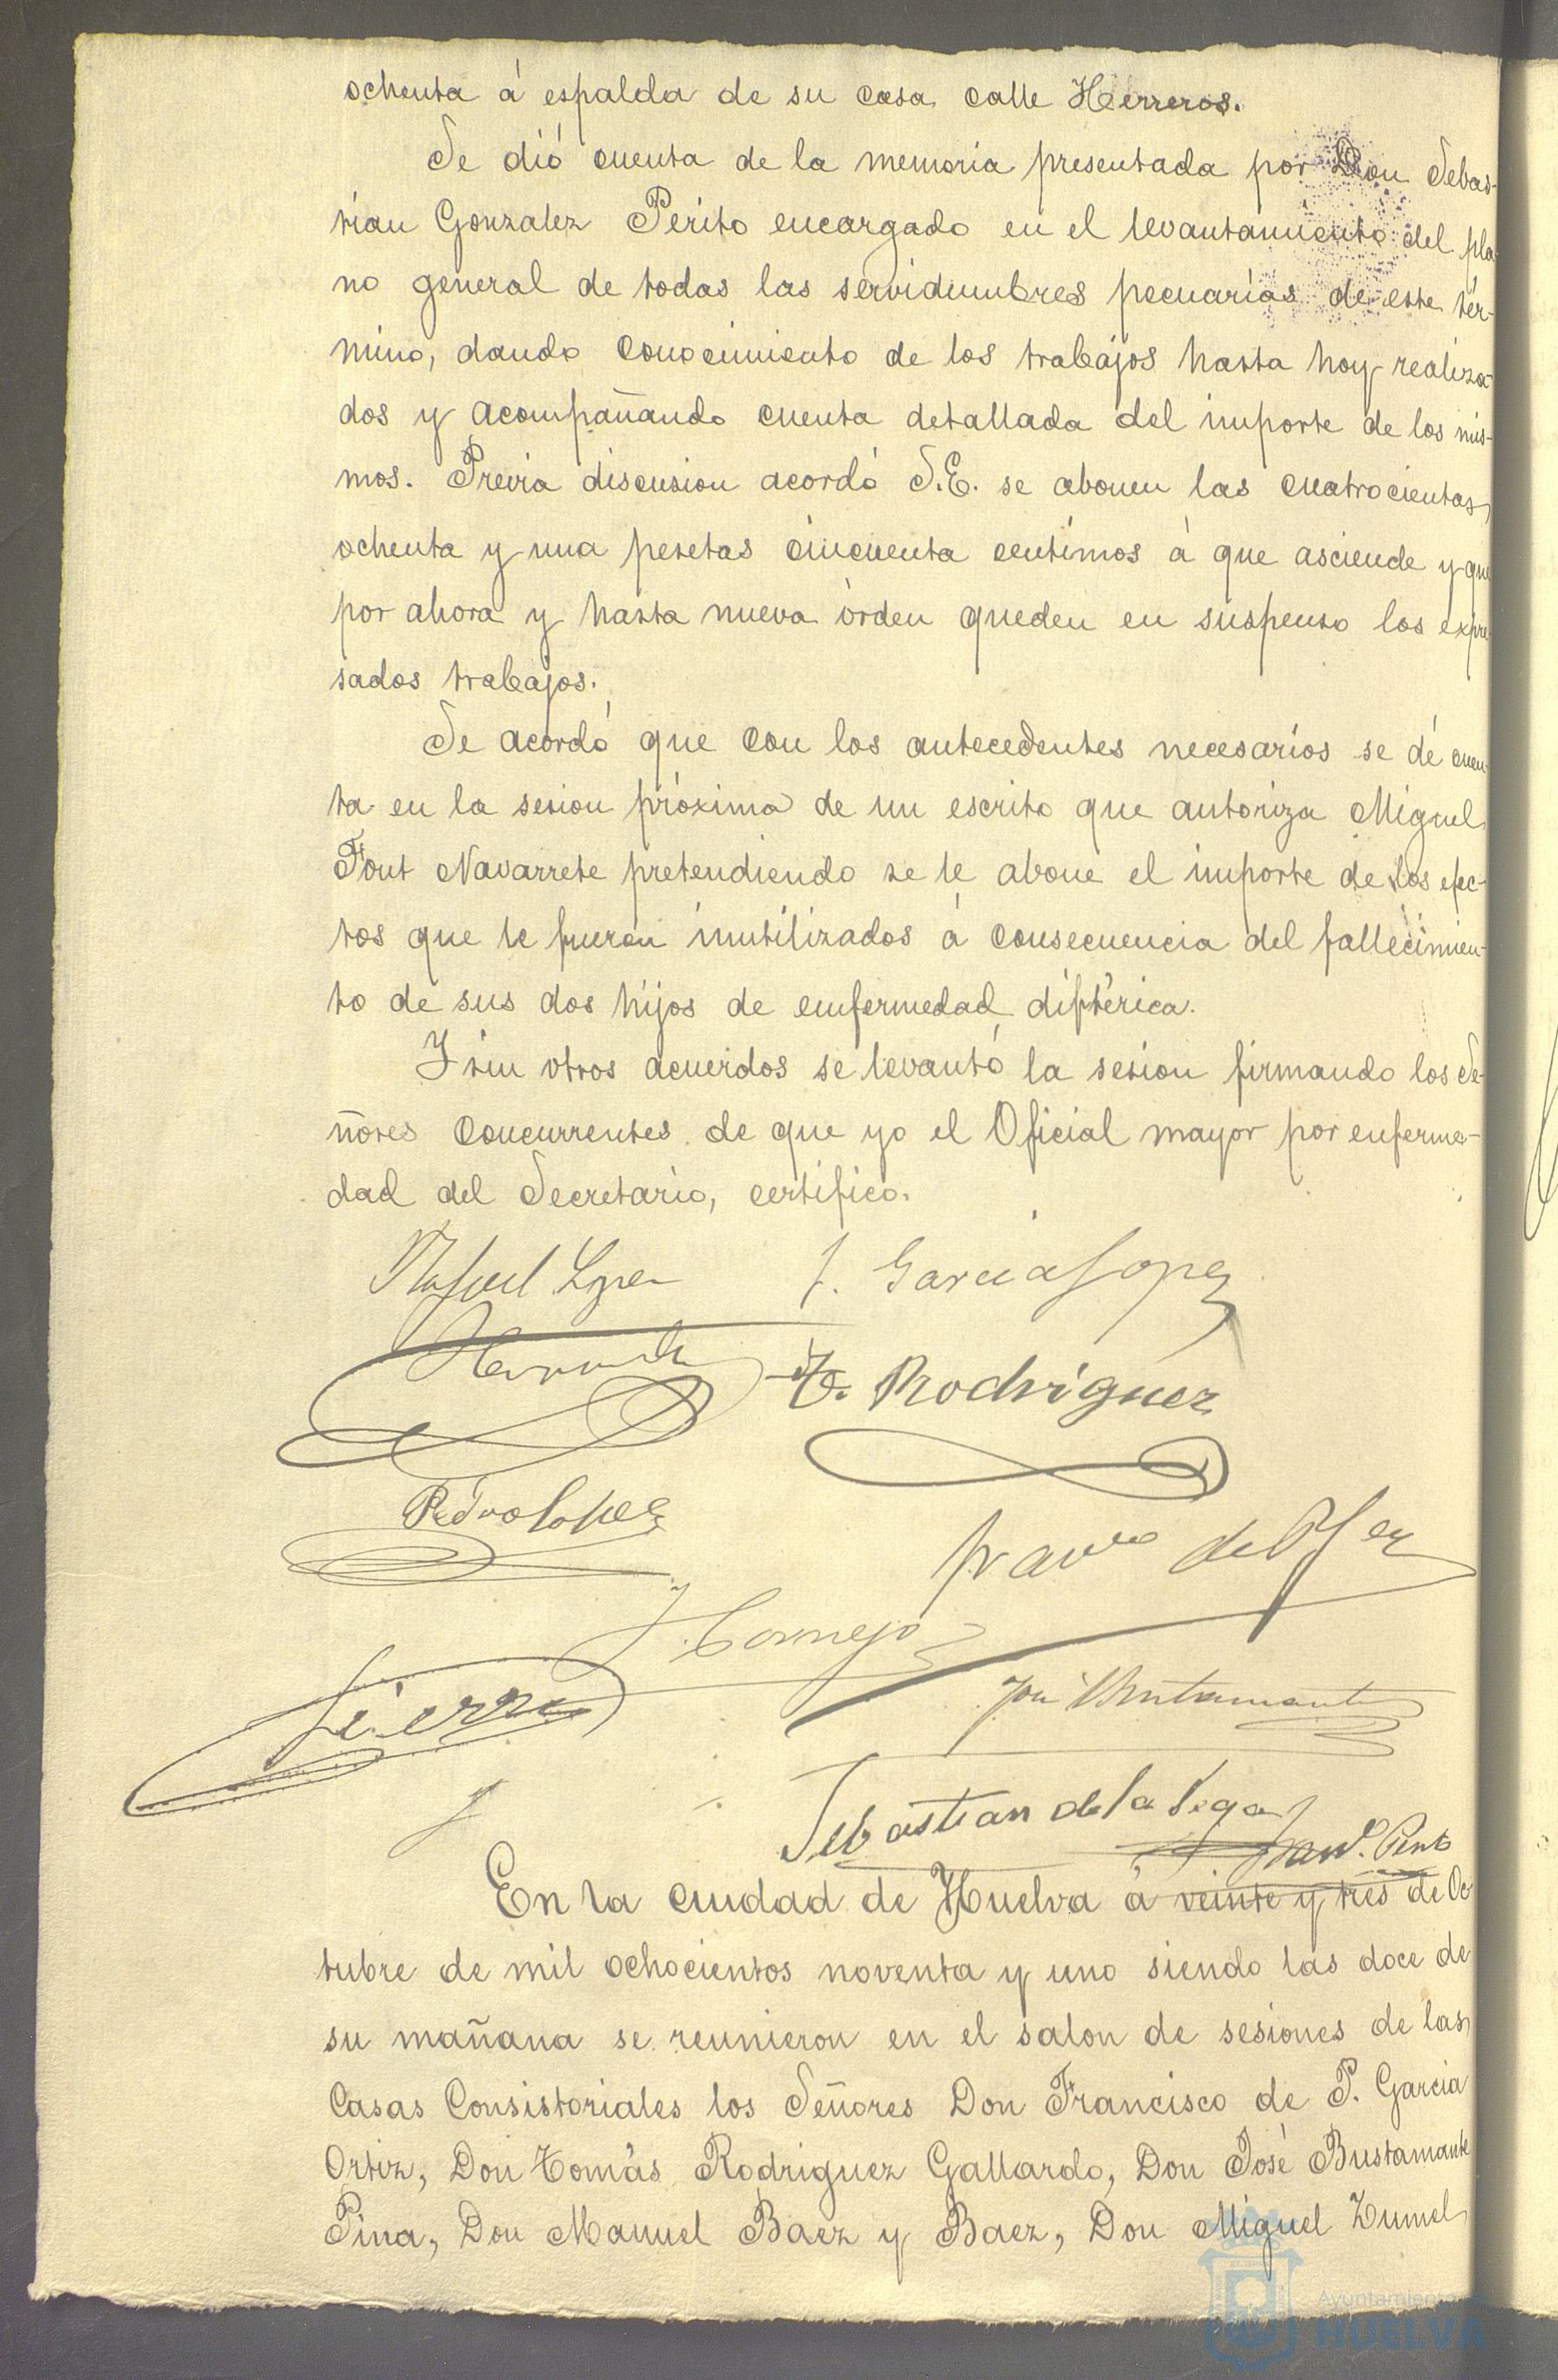 ochenta á espalda de su casa calle Herreros.
Se dió cuenta de la memoria presentada por Don Sebas-
tian Gonzalez Perito encargado en el levantamiento del pla
no general de todas las servidumbres pecuarias de este tér-
mino, dando conocimiento de los trabajos hasta hoy realiza-
dos y acompañando cuenta detallada del importe de los mis-
mos. Previa discusion acordó S.E. se abonen las cuatrocientas
ochenta y una pesetas cincuenta centimos á que asciende y que
por ahora y hasta nueva órden queden en suspenso los expre
sados trabajos.
Se acordó que con los antecedentes necesarios se dé cuen-
ta en la sesion próxima de un escrito que autoriza Miguel
Font Navarrete pretendiendo se le abone el importe de los efec-
tos que le fueron inutilizados á consecuencia del fallecimien-
to de sus dos hijos de enfermedad diftérica.
Y sin otros acuerdos se levantó la sesion firmando los Se-
ñores concurrentes de que yo el Oficial mayor por enferme-
dad del Secretario, certifico.
Rafael Lopez J. Garcia Lopez
Hernandez T. Rodriguez
Pedro Lopez
J. Cornejo
Sierra José Bustamante
Sebastian de la Vega
Man.l Pinto
En la ciudad de Huelva á veinte y tres de Oc
tubre de mil ochocientos noventa y uno siendo las doce de
su mañana se reunieron en el salon de sesiones de las
Casas Consistoriales los Señores Don Francisco de P. Garcia
Ortiz, Don Tomás Rodriguez Gallardo, Don José Bustamante
Pina, Don Manuel Baez y Baez, Don Miguel Zumel
Ayuntamiento
HUELVA